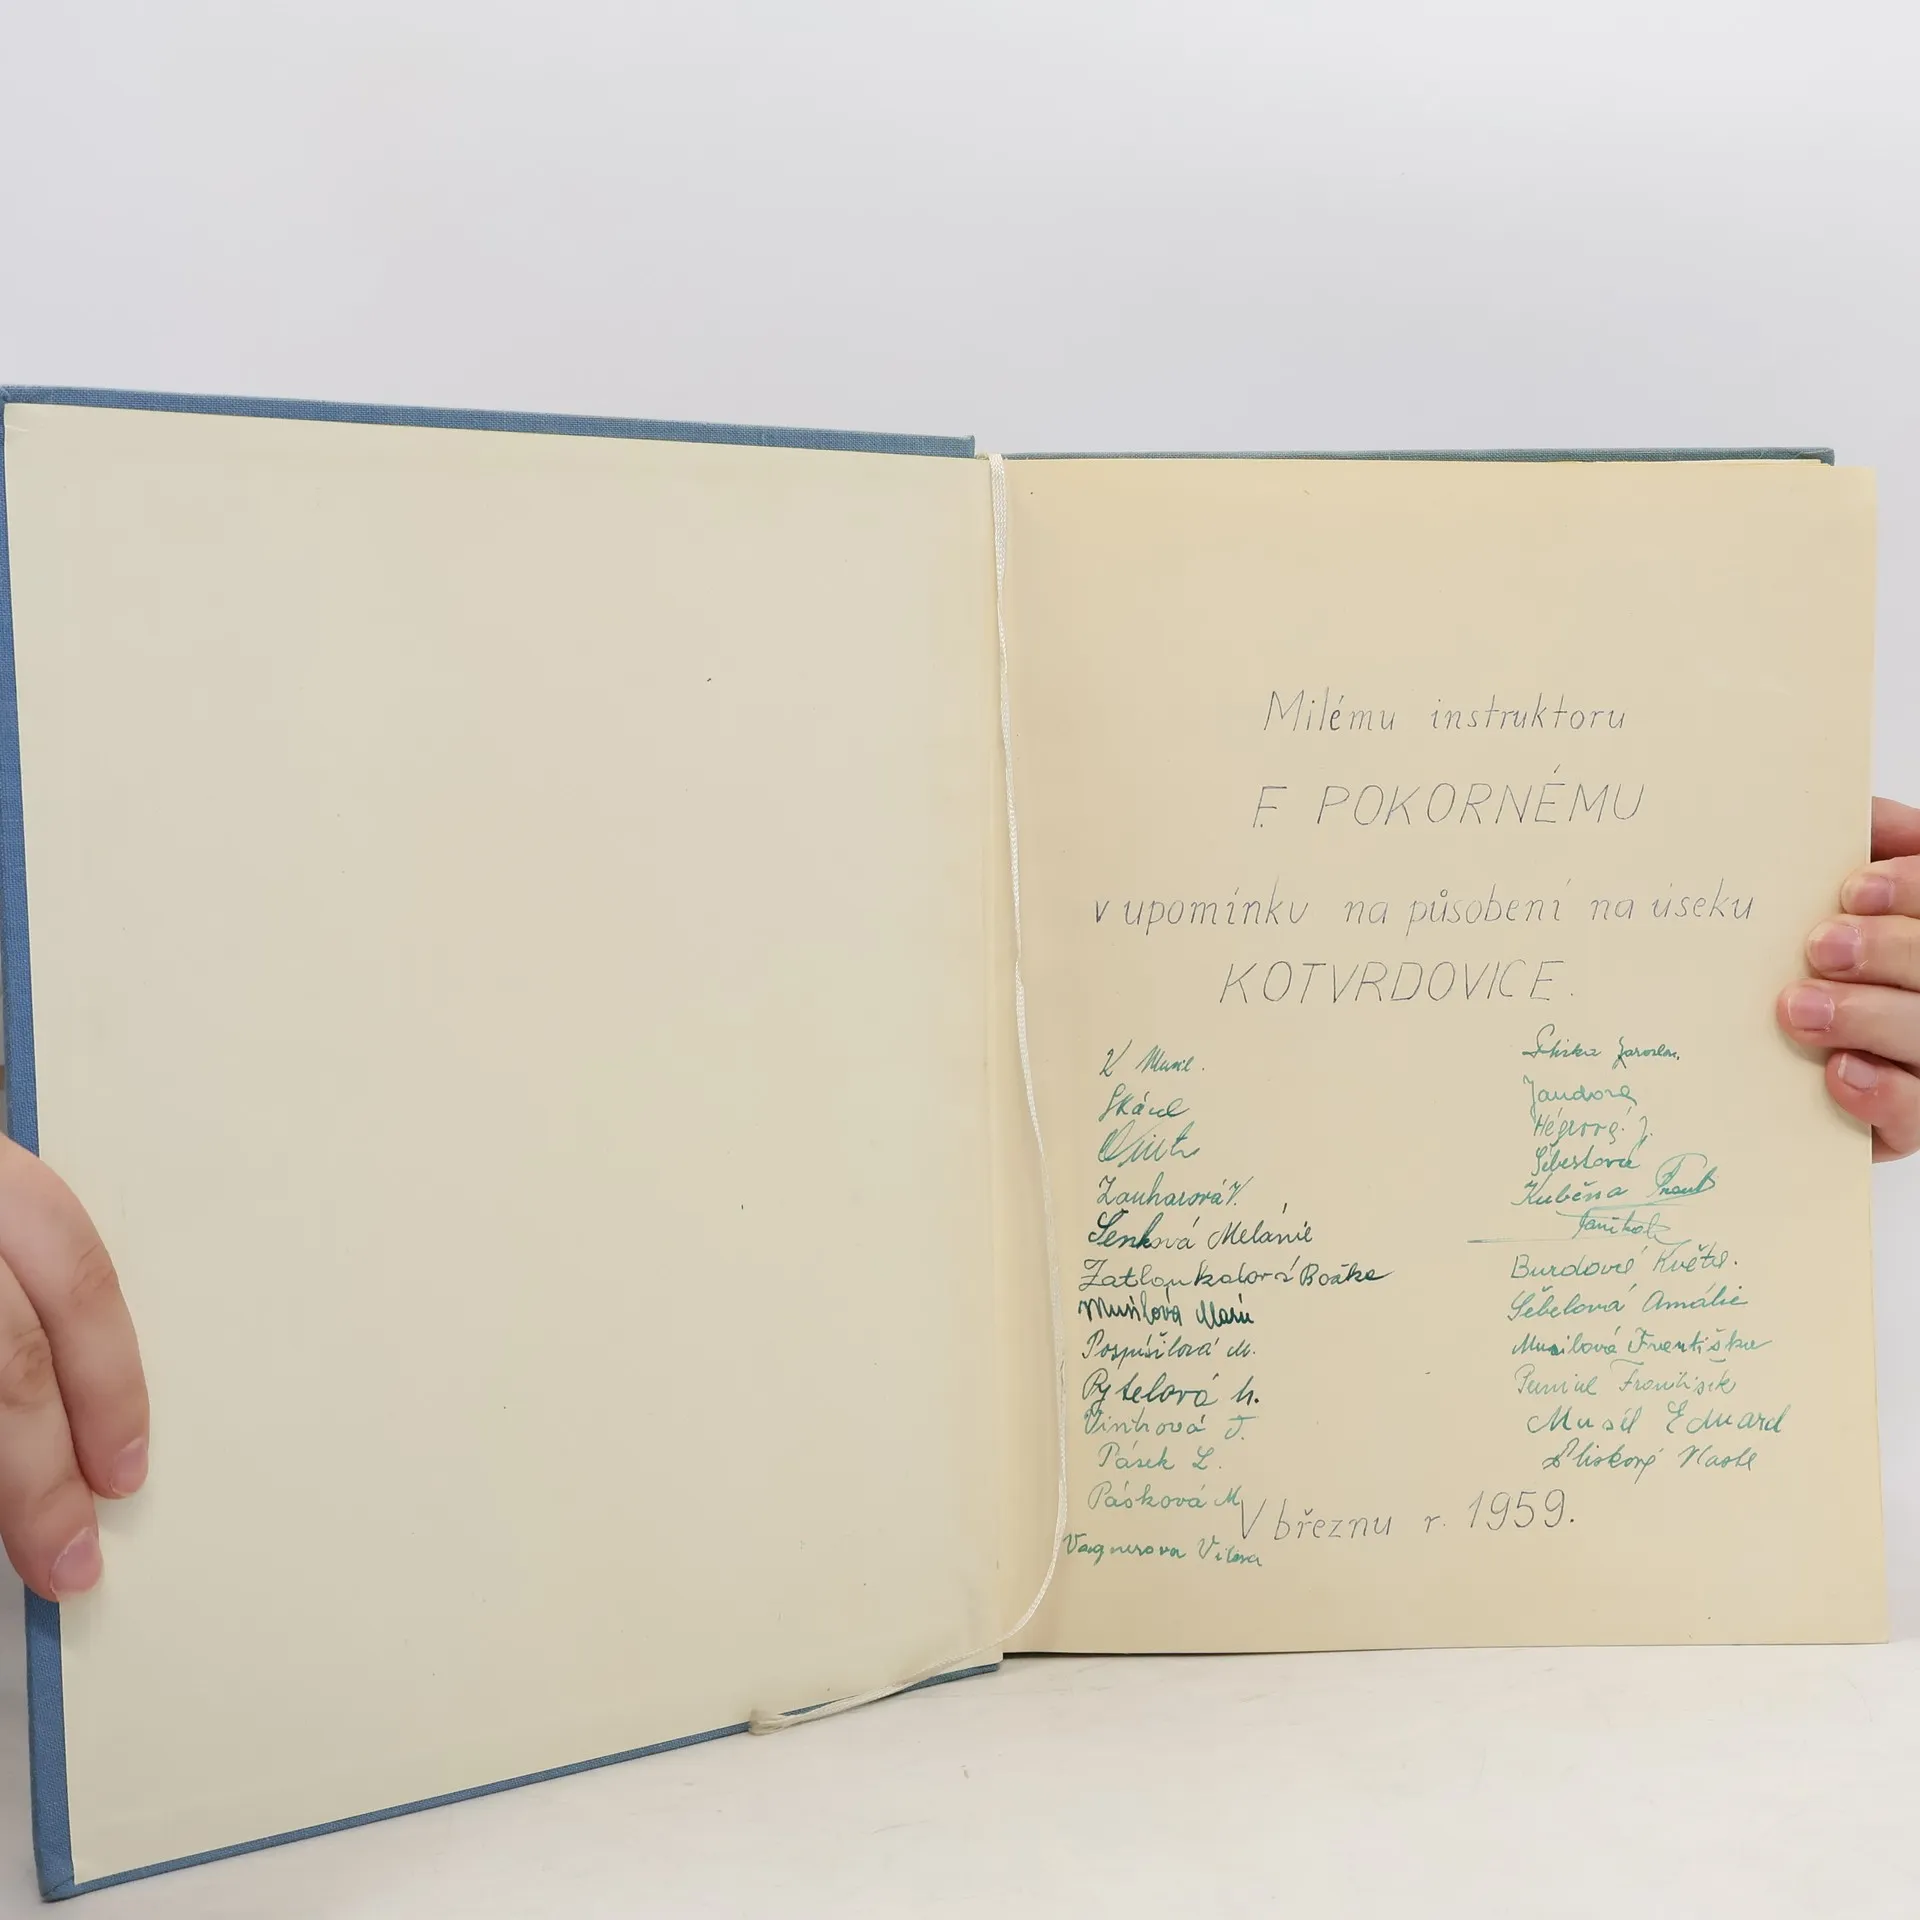 Milému instruktoru
F. POKORNÉMU
v upomínku na působení na úseku
KOTVRDOVICE.
K Musil.
Zouharová V.
Šenková Melánie
Zatloukalová Božka
Musilová Marie
Pospíšilová M.
Pytelová h.
Vintrová F.
Pásek L.
Pásková M
Vagnerova Vilma
Jandová
Hégrová J.
Šebestová
Kuběna
Burdová Květa.
Šebelová Amálie
Musilová Františka
František
Musil Eduard
V březnu r. 1959.